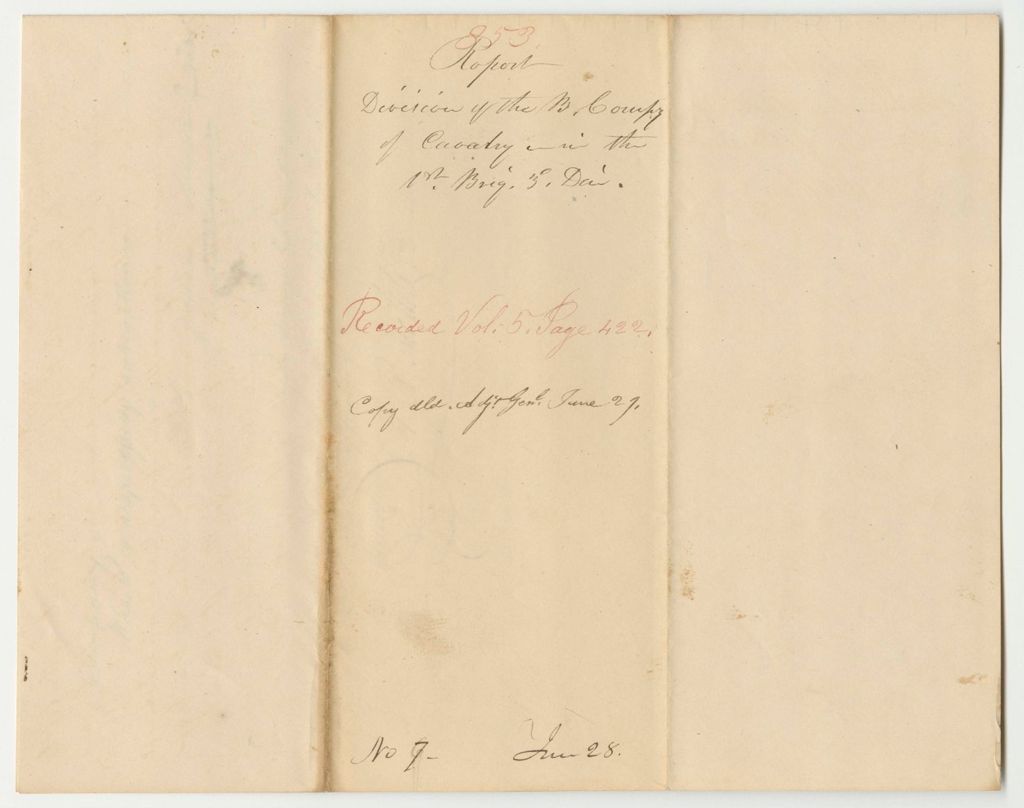 253
Report
Division of the B Compy
of Cavalry – in the
1st. Brig. 3d. Div.
Recorded Vol: 5. Page 422.
Copy dld. Adjt Genl. June 29.
No 7– June 28.